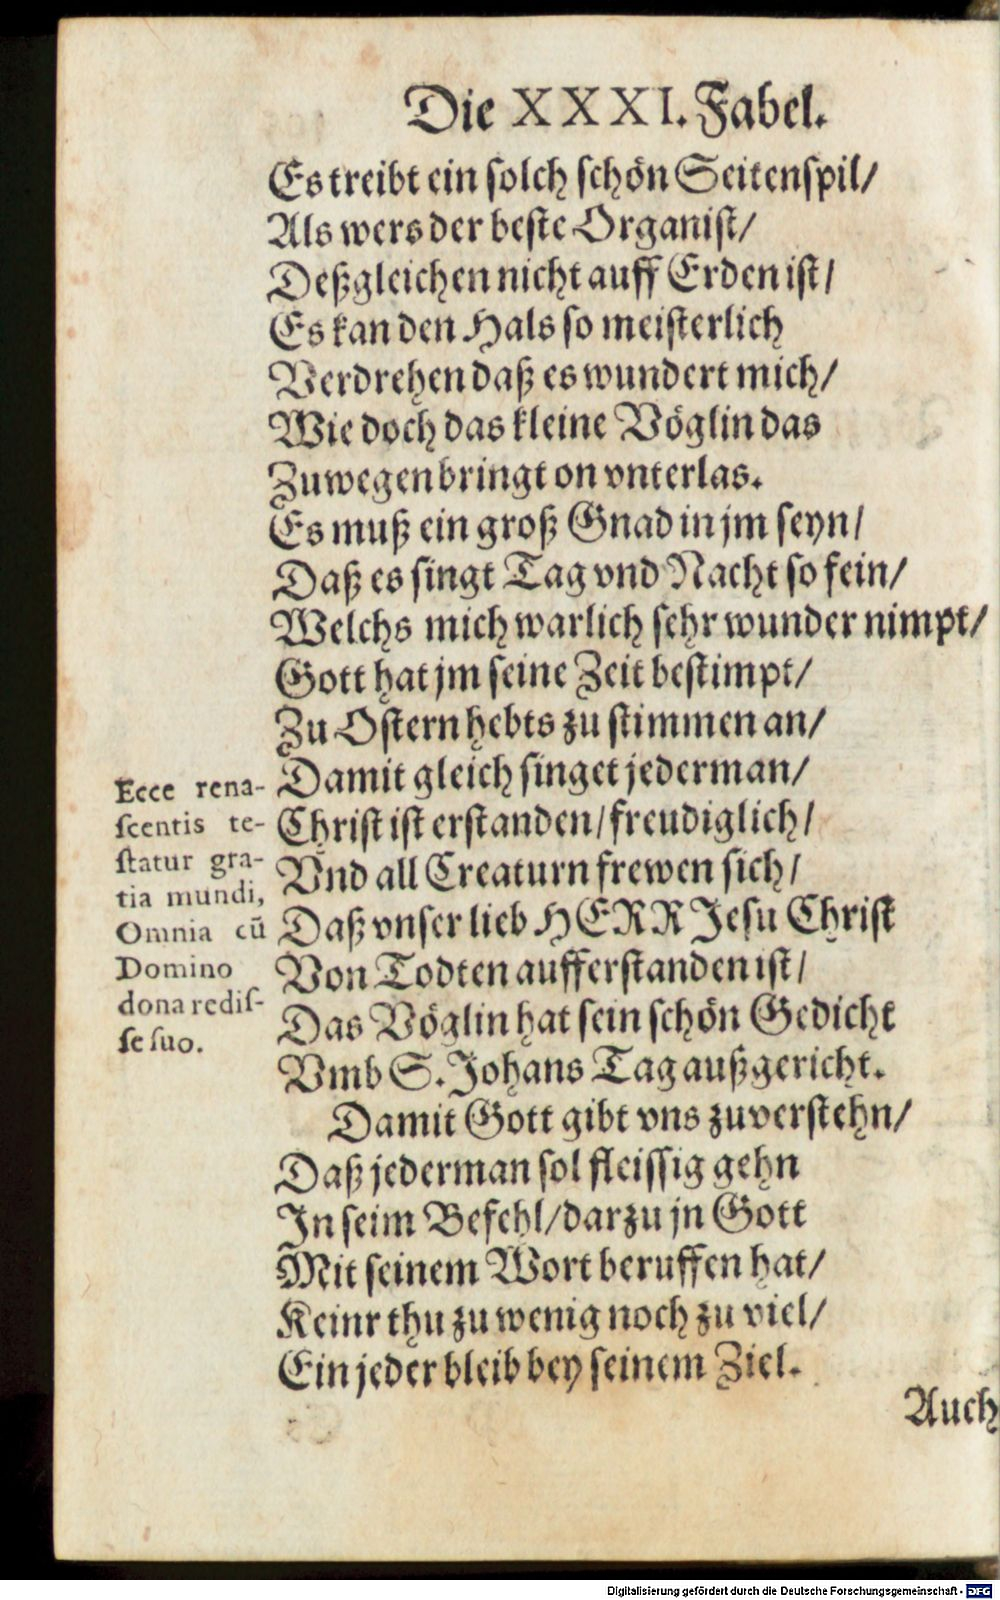 Die XXXI. Fabel.
Es treibt ein solch schön Seitenspil/
Als wers der beste Organist/
Deßgleichen nicht auff Erden ist/
Es kan den Hals so meisterlich
Verdrehen daß es wundert mich/
Wie doch das kleine Vöglin das
Zuwegen bringt on vnterlas.
Es muß ein groß Gnad in jm seyn/
Daß es singt Tag vnd Nacht so fein/
Welchs mich warlich sehr wunder nimpt/
Gott hat jm seine Zeit bestimpt/
Zu Ostern hebts zu stimmen an/
Damit gleich singet jederman/
Christ ist erstanden/freudiglich/
Vnd all Creaturn frewen sich/
Daß vnser lieb HERR Jesu Christ
Von Todten aufferstanden ist/
Das Vöglin hat sein schön Gedicht
Vmb S. Johans Tag außgericht.
Damit Gott gibt vns zuverstehn/
Daß jederman sol fleissig gehn
In seim Befehl/darzu jn Gott
Mit seinem Wort beruffen hat/
Keinr thu zu wenig noch zu viel/
Ein jeder bleib bey seinem Ziel.
Auch
Ecce rena-
ſcentis te-
ſtatur gra-
tia mundi,
Omnia cū
Domino
dona rediſ-
ſe ſuo.
Digitalisierung gefördert durch die Deutsche Forschungsgemeinschaft - DFG